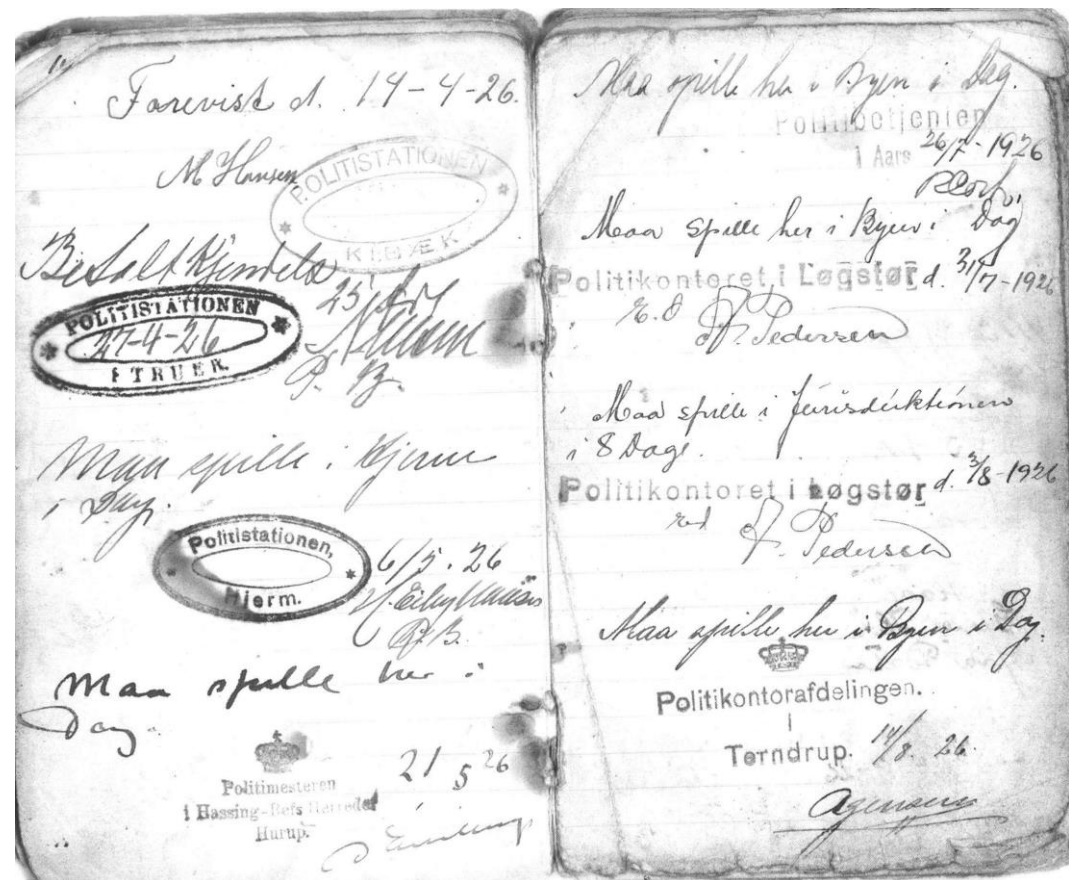 Forevist d. 14-4-26.
M Hansen
POLITISTATIONEN
KIBÆK
Betalt Kjendels
25 Øre
POLITISTATIONEN
27-4-26
I TRUER.
P. B.
Maa spille i Hjerm
i Dag.
Politistationen,
Hjerm.
6/5. 26
P. B.
Maa spille her i
Dag
Politimesteren
i Hassing-Refs Herreder
Hurup.
21/5 26
Maa spille her i Byen i Dag.
Politibetjenten
i Aars 26/7-1926
Maa spille her i Byen i Dag
Politikontoret i Løgstør d. 31/7-1926
P. Pedersen
Maa spille i Jurisdiktionen
i 8 Dage.
Politikontoret i Løgstør d. 3/8-1926
P. Pedersen
Maa spille her i Byen i Dag.
Politikontorafdelingen.
i
Terndrup. 14/8. 26.